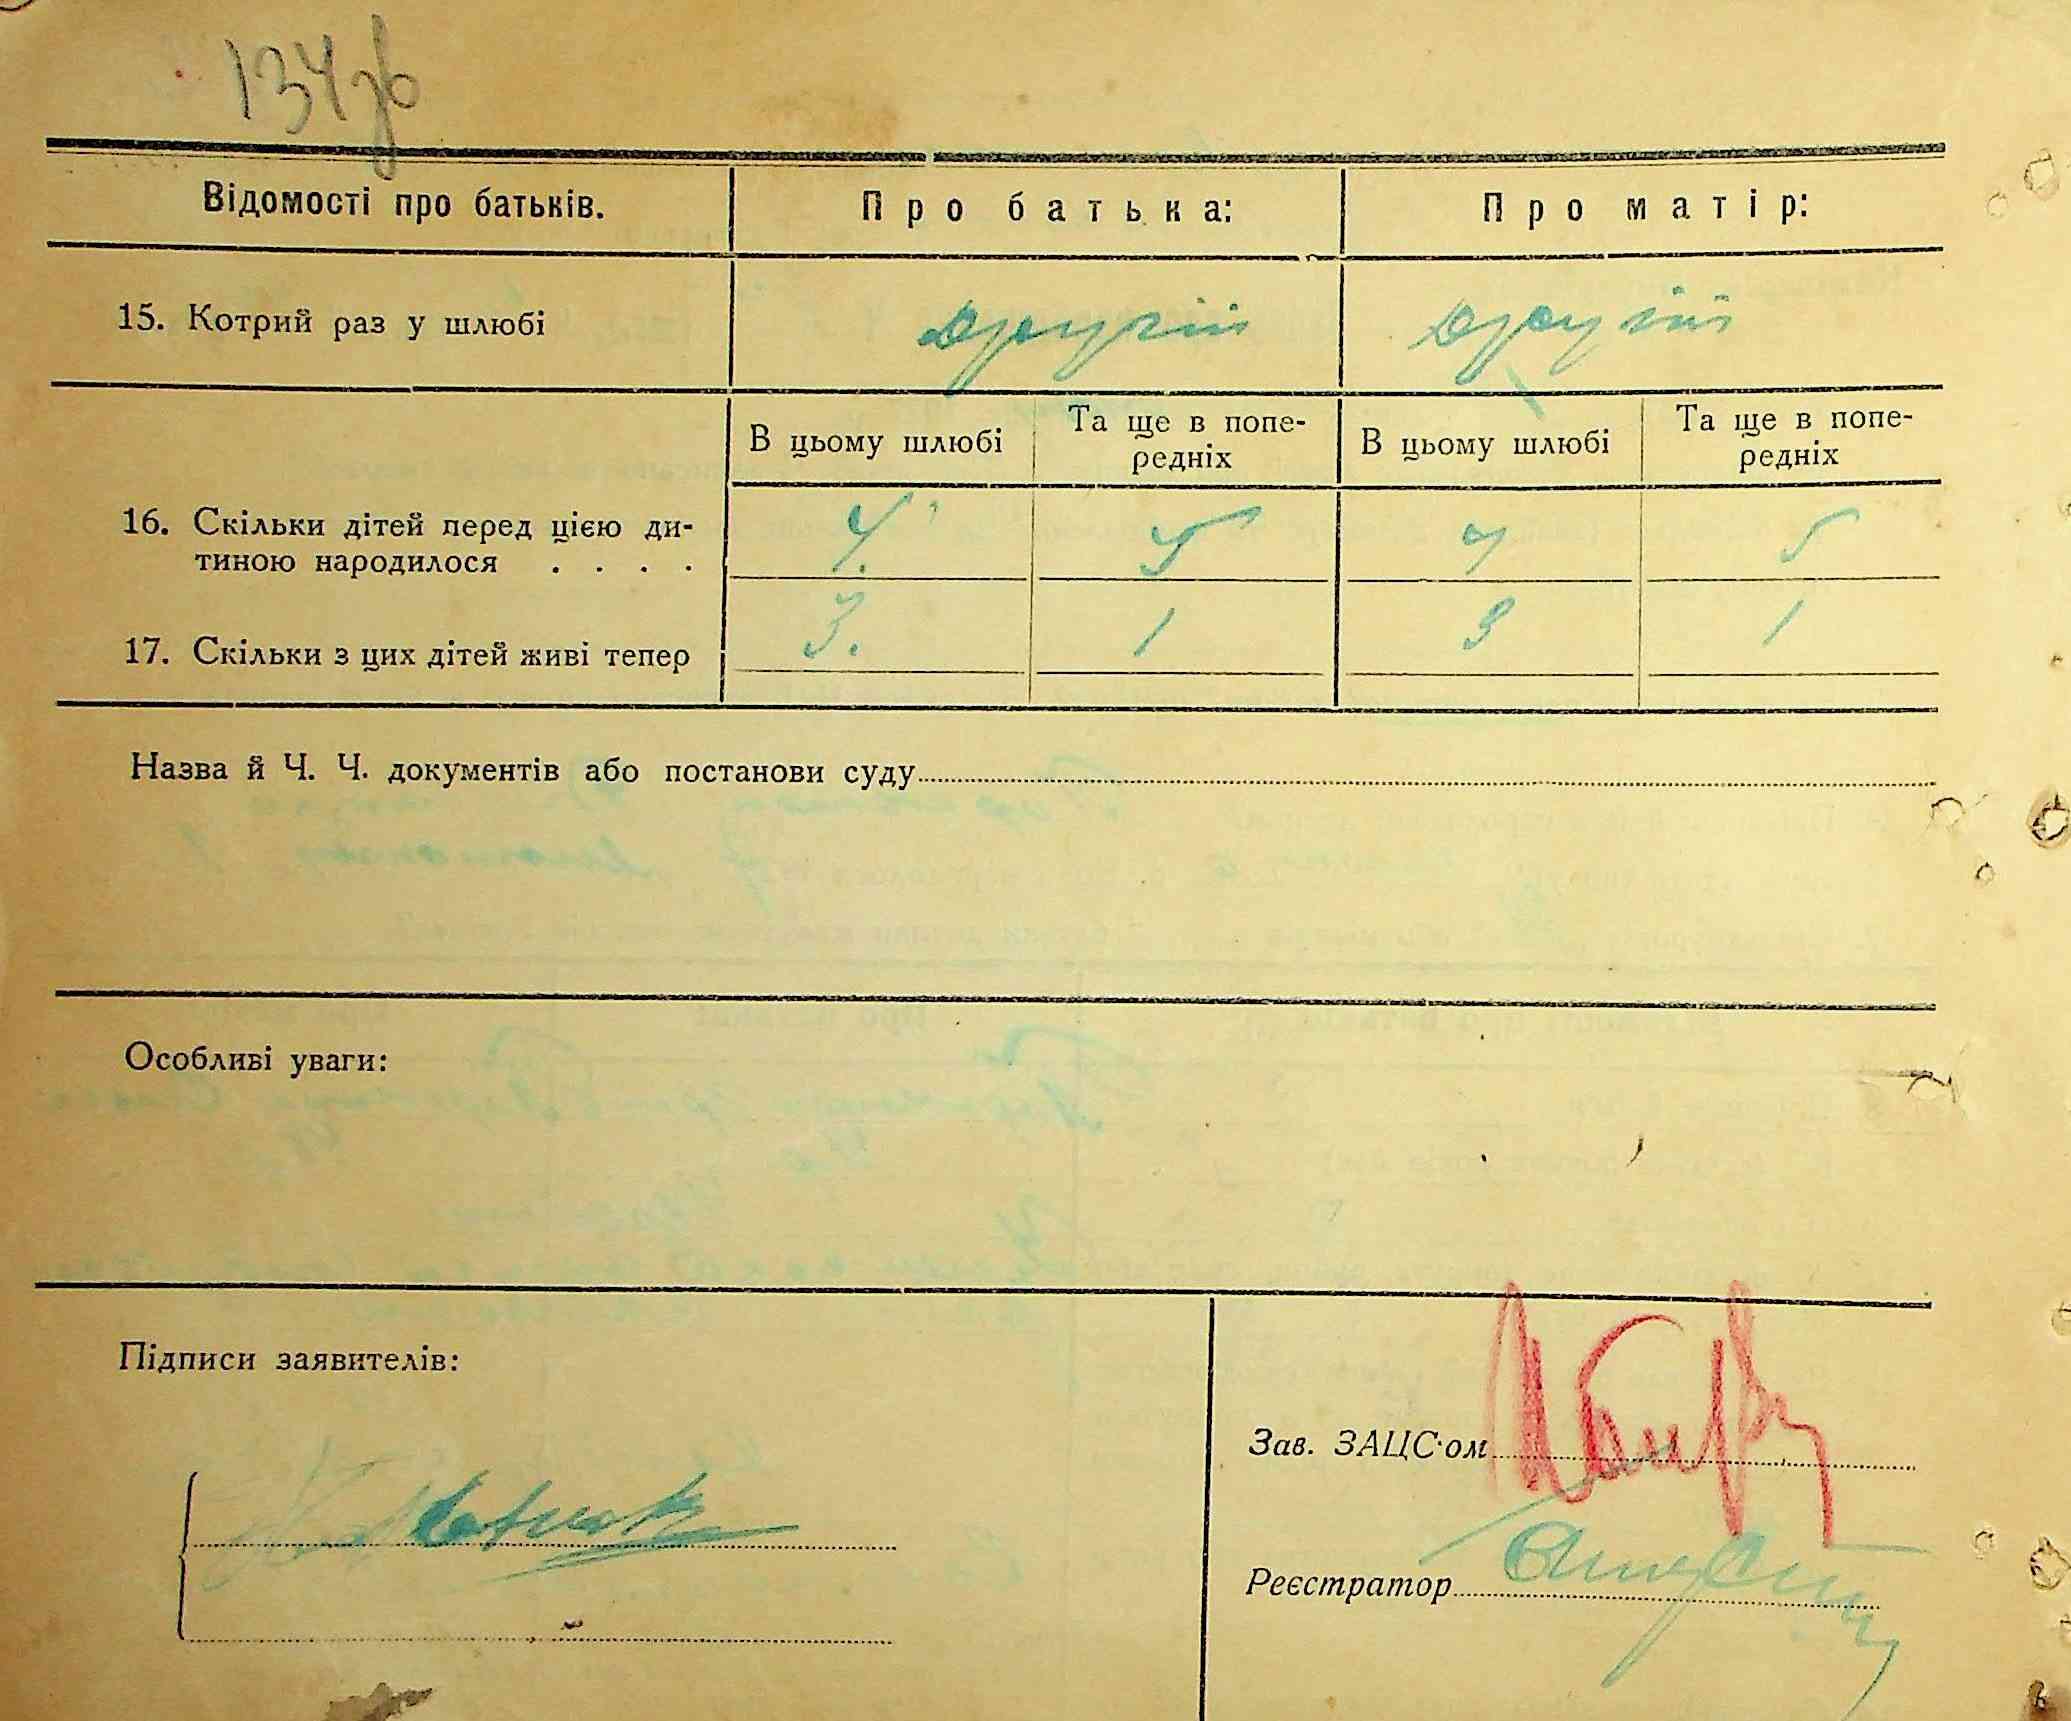 134зв
Відомості про батьків.
Про батька:
Про матір:
15. Котрий раз у шлюбі
другій
другій
В цьому шлюбі
Та ще в попе-
редніх
В цьому шлюбі
Та ще в попе-
редніх
16. Скільки дітей перед цією ди-
тиною народилося . . . .
4. 5 4 5
17. Скільки з цих дітей живі тепер
3. 1 3 1
Назва й Ч. Ч. документів або постанови суду
Особливі уваги:
Підписи заявителів:
Зав. ЗАЦС-ом
Реєстратор